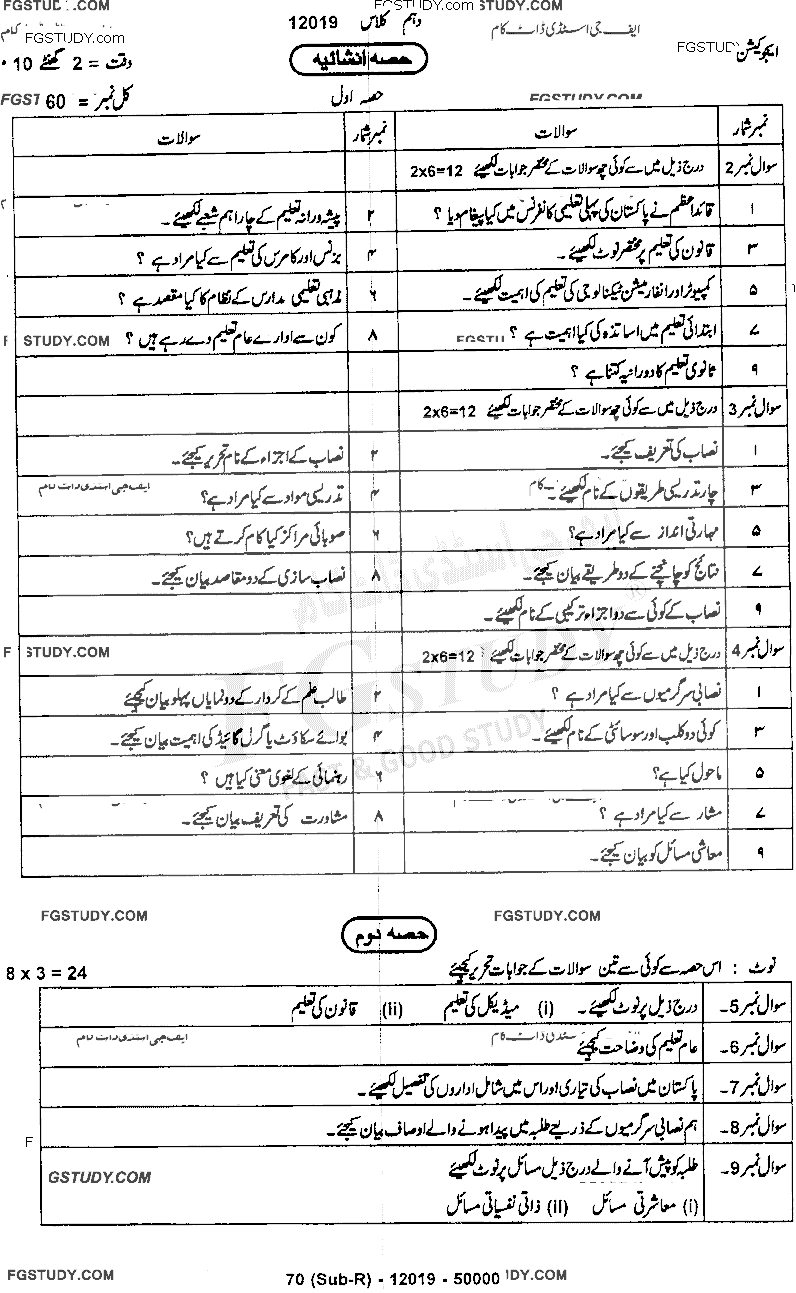 FGSTUDY.COM FGSTUDY.com STUDY.COM
دہم کلاس 12019 ایف جی اسٹڈی ڈاٹ کام
ایجوکیشن FGSTUDY FGSTUDY.com
حصہ انشائیہ
وقت = 2 گھنٹے 10
حصہ اول
کل نمبر = 60 FGST FGSTUDY.COM
نمبر شمار سوالات نمبر شمار سوالات
سوال نمبر 2 درج ذیل میں سے کوئی چھ سوالات کے مختصر جوابات لکھیئے 2x6=12
۱ قائداعظم نے پاکستان کی پہلی تعلیمی کانفرنس میں کیا پیغام دیا ؟ ۲ پیشہ ورانہ تعلیم کے چار اہم شعبے لکھیئے ۔
۳ قانون کی تعلیم پر مختصر نوٹ لکھیئے ۔ ۴ بزنس اور کامرس کی تعلیم سے کیا مراد ہے ؟
۵ کمپیوٹر اور انفارمیشن ٹیکنالوجی کی تعلیم کی اہمیت لکھیئے ۔ ۶ مذہبی تعلیمی مدارس کے نظام کا کیا مقصد ہے ؟
۷ ابتدائی تعلیم میں اساتذہ کی کیا اہمیت ہے ؟ FGSTU ۸ کون سے ادارے عام تعلیم دے رہے ہیں ؟ STUDY.COM F
۹ ثانوی تعلیم کا دورانیہ کتنا ہے ؟
سوال نمبر 3 درج ذیل میں سے کوئی چھ سوالات کے مختصر جوابات لکھیئے 2x6=12
۱ نصاب کی تعریف کیجئے ۔ ۲ نصاب کے اجزاء کے نام تحریر کیجئے ۔
۳ چار تدریسی طریقوں کے نام لکھیئے ۔ کام ۴ تدریسی مواد سے کیا مراد ہے؟ ایف جی اسٹڈی ڈاٹ کام
۵ مہارتی انداز سے کیا مراد ہے؟ ۶ صوبائی مراکز کیا کام کرتے ہیں؟
۷ نتائج کو جانچنے کے دو طریقے بیان کیجئے ۔ ۸ نصاب سازی کے دو مقاصد بیان کیجئے ۔
۹ نصاب کے کوئی سے دو اجزاء ترکیبی کے نام لکھیئے ۔
سوال نمبر 4 درج ذیل میں سے کوئی چھ سوالات کے مختصر جوابات لکھیئے 2x6=12 STUDY.COM F
۱ نصابی سرگرمیوں سے کیا مراد ہے ؟ ۲ طالب علم کے کردار کے دو نمایاں پہلو بیان کیجئے
۳ کوئی دو کلب اور سوسائٹی کے نام لکھیئے ۔ ۴ بوائے سکاؤٹ یا گرل گائیڈ کی اہمیت بیان کیجئے ۔
۵ ماحول کیا ہے؟ ۶ رہنمائی کے لغوی معنی کیا ہیں ؟
۷ مشار سے کیا مراد ہے ؟ ۸ مشاورت کی تعریف بیان کیجئے ۔
۹ معاشی مسائل کو بیان کیجئے ۔
ایف جی اسٹڈی ڈاٹ کام
FG STUDY
FAST & GOOD STUDY
FGSTUDY.COM FGSTUDY.COM
حصہ دوم
نوٹ : اس حصہ سے کوئی سے تین سوالات کے جوابات تحریر کیجئے 8 x 3 = 24
سوال نمبر 5۔ درج ذیل پر نوٹ لکھیئے ۔ (i) میڈیکل کی تعلیم (ii) قانون کی تعلیم
سوال نمبر 6۔ عام تعلیم کی وضاحت کیجئے سٹڈی ڈاٹ کام ایف جی اسٹڈی ڈاٹ کام
سوال نمبر 7۔ پاکستان میں نصاب کی تیاری اور اس میں شامل اداروں کی تفصیل لکھیئے ۔
سوال نمبر 8۔ ہم نصابی سرگرمیوں کے ذریعے طلبہ میں پیدا ہونے والے اوصاف بیان کیجئے ۔ F
سوال نمبر 9۔ طلبہ کو پیش آنے والے درج ذیل مسائل پر نوٹ لکھیئے GSTUDY.COM
(i) معاشرتی مسائل (ii) ذاتی نفسیاتی مسائل
FGSTUDY.COM 70 (Sub-R) - 12019 - 50000 DY.COM